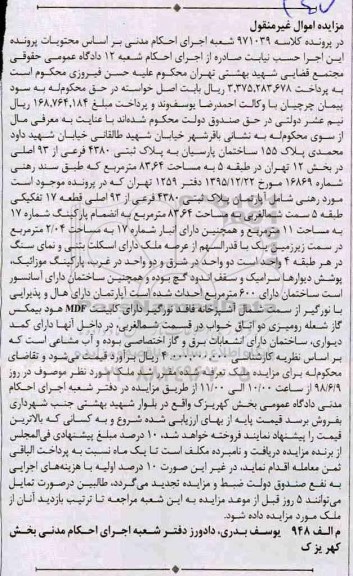 مزایده اموال غیرمنقول
در پرونده کلاسه ۹۷۱۰۳۹ شعبه اجرای احکام مدنی بر اساس محتویات پرونده
این اجرا حسب نیابت صادره از اجرای احکام شعبه ۱۲ دادگاه عمومی حقوقی
مجتمع قضایی شهید بهشتی تهران محکوم علیه حسن فیروزی محکوم است
به پرداخت ۳,۳۷۵,۲۸۳,۶۷۸ ریال بابت اصل خواسته در حق محکوم‌له به سود
پیمان چرچیان با وکالت احمدرضا یوسف‌وند و پرداخت مبلغ ۱۶۸,۷۶۴,۱۸۴ ریال
نیم عشر دولتی در حق صندوق دولت محکوم شده‌اند با عنایت به معرفی مال
از سوی محکوم‌له به نشانی باقرشهر خیابان شهید طالقانی خیابان شهید داود
محمدی پلاک ۱۵۵ ساختمان پارسیان به پلاک ثبتی ۴۳۸۰ فرعی از ۹۳ اصلی
در بخش ۱۲ تهران در طبقه ۵ به مساحت ۸۳,۶۴ مترمربع که طبق سند رهنی
شماره ۱۶۸۶۹ مورخ ۱۳۹۵/۱۲/۲۲ دفتر ۱۲۵۹ تهران که در پرونده موجود است
مورد رهنی شامل آپارتمان پلاک ثبتی ۴۳۸۰ فرعی از ۹۳ اصلی قطعه ۱۷ تفکیکی
طبقه ۵ سمت شمالغربی به مساحت ۸۳,۶۴ مترمربع به انضمام پارکینگ شماره ۱۷
به مساحت ۱۱ مترمربع و همچنین دارای انبار شماره ۱۷ به مساحت ۲/۰۴ مترمربع
در سمت زیرزمین یک با قدرالسهم از عرصه ملک دارای اسکلت بتنی و نمای سنگ
در هر طبقه ۴ واحد است دو واحد در شرق و دو واحد در غرب، پارکینگ موزائیک،
پوشش دیوارها سرامیک و سقف اندود گچ بوده و همچنین ساختمان دارای آسانسور
است ساختمان دارای ۶۰۰ مترمربع احداث شده است آپارتمان دارای هال و پذیرایی
با نورگیر از سمت شمال آشپزخانه فاقد نورگیر دارای کابینت MDF هود بیمکس
گاز شعله رومیزی دو اتاق خواب در قسمت شمالغربی، در داخل آنها دارای کمد
دیواری، ساختمان دارای انشعابات برق و گاز اختصاصی بوده و آب مشاعی است که
بر اساس نظریه کارشناسی ریال برآورد قیمت می‌شود و تقاضای
محکوم‌له برای مزایده ملک تعرفه شده مزایده ملک مورد نظر موصوف در روز
۹۸/۶/۹ از ساعت ۱۰/۰۰ الی ۱۱/۰۰ از طریق مزایده در دفتر شعبه اجرای احکام
مدنی دادگاه عمومی بخش کهریزک واقع در بلوار شهید بهشتی جنب شهرداری
بفروش برسد قیمت پایه از بهای ارزیابی شده شروع و به کسانی که بالاترین
قیمت را پیشنهاد نمایند فروخته خواهد شد، ۱۰ درصد مبلغ پیشنهادی فی‌المجلس
از برنده مزایده دریافت و نامبرده مکلف است تا یک ماه نسبت به پرداخت الباقی
ثمن معامله اقدام نماید، در غیر این صورت ۱۰ درصد اولیه با هزینه‌های اجرایی
به نفع صندوق دولت ضبط و مزایده تجدید می‌گردد، طالبین درصورت تمایل
می‌توانند ۵ روز قبل از موعد مزایده به این شعبه مراجعه تا ترتیب بازدید آنان از
ملک مورد مزایده داده شود.
م الف ۹۴۸ یوسف بدری، دادورز دفتر شعبه اجرای احکام مدنی بخش
کهریزک